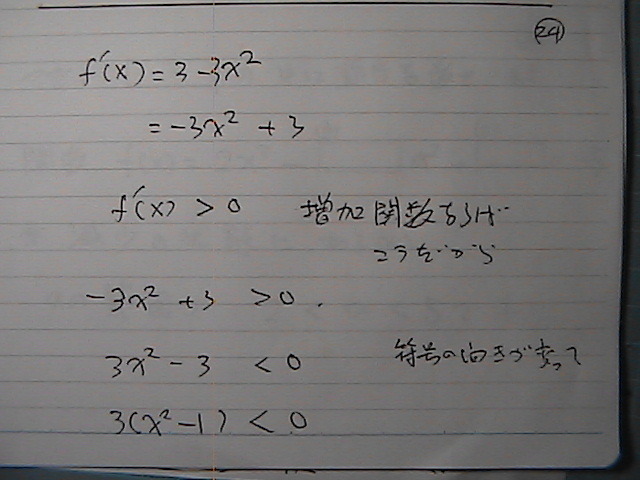 24
f'(x) = 3 - 3x²
= -3x² + 3
f'(x) > 0 増加関数ならば
こうだから
-3x² + 3 > 0.
3x² - 3 < 0 符号の向きが変って
3(x² - 1) < 0